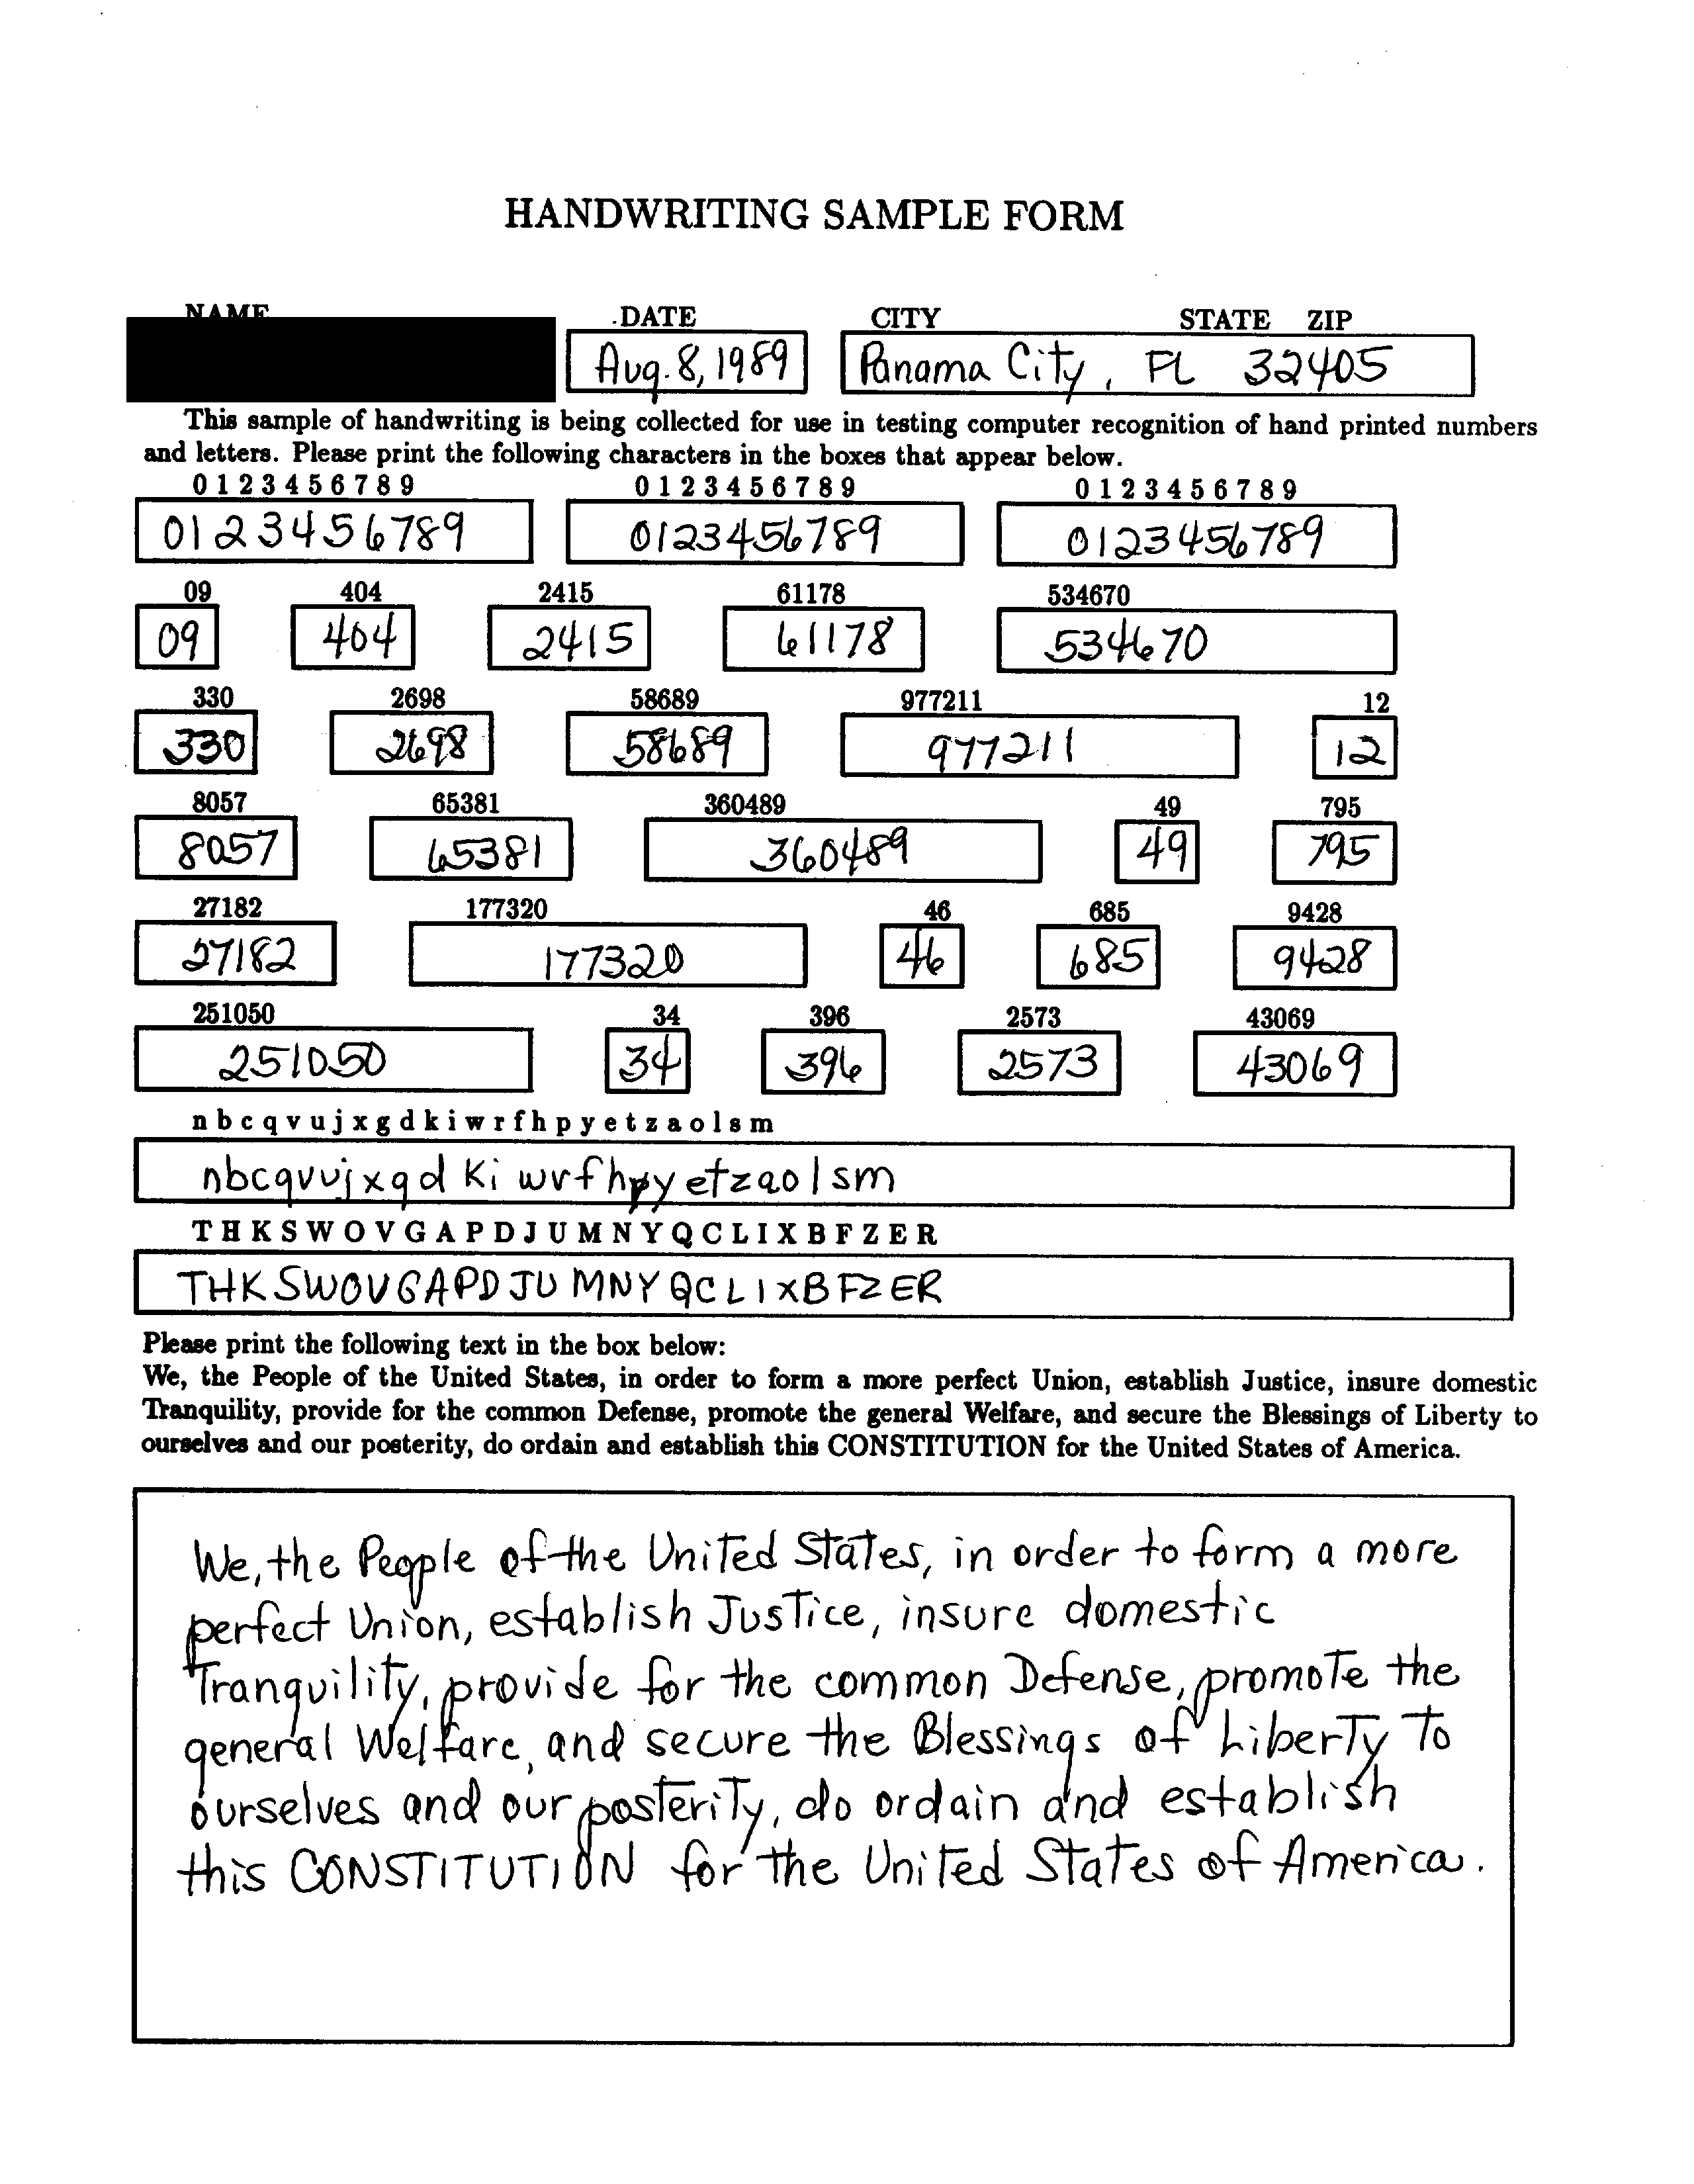 HANDWRITING SAMPLE FORM
NAME DATE CITY STATE ZIP
Aug. 8, 1989 Panama City, FL 32405
This sample of handwriting is being collected for use in testing computer recognition of hand printed numbers
and letters. Please print the following characters in the boxes that appear below.
0 1 2 3 4 5 6 7 8 9 0 1 2 3 4 5 6 7 8 9 0 1 2 3 4 5 6 7 8 9
0123456789 0123456789 0123456789
09 404 2415 61178 534670
09 404 2415 61178 534670
330 2698 58689 977211 12
330 2698 58689 977211 12
8057 65381 360489 49 795
8057 65381 360489 49 795
27182 177320 46 685 9428
27182 177320 46 685 9428
251050 34 396 2573 43069
251050 34 396 2573 43069
n b c q v u j x g d k i w r f h p y e t z a o l s m
nbcqvujxgd ki wrfhpy etzaolsm
T H K S W O V G A P D J U M N Y Q C L I X B F Z E R
THKSWOVGAPDJUMNYQCLIXBFZER
Please print the following text in the box below:
We, the People of the United States, in order to form a more perfect Union, establish Justice, insure domestic
Tranquility, provide for the common Defense, promote the general Welfare, and secure the Blessings of Liberty to
ourselves and our posterity, do ordain and establish this CONSTITUTION for the United States of America.
We, the People of the United States, in order to form a more
perfect Union, establish Justice, insure domestic
Tranquility, provide for the common Defense, promote the
general Welfare, and secure the Blessings of Liberty to
ourselves and our posterity, do ordain and establish
this CONSTITUTION for the United States of America.